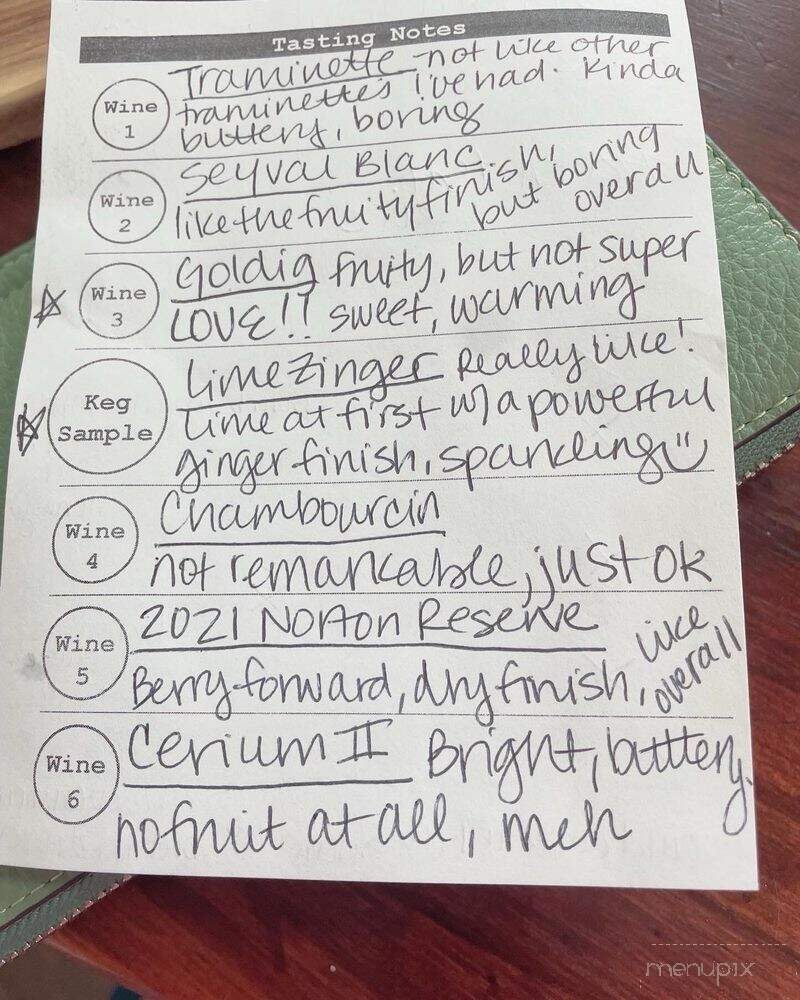 Tasting Notes
Wine 1
Traminette - not like other
traminettes i've had. Kinda
buttery, boring
Wine 2
Seyval Blanc
like the fruity finish,
but boring
overall
Wine 3
Goldig fruity, but not super
LOVE!! sweet, warming
Keg Sample
Lime Zinger Really like!
Lime at first w/ a powerful
ginger finish, sparkling
Wine 4
Chambourcin
not remarkable, just ok
Wine 5
2021 Norton Reserve
Berry forward, dry finish, like
overall
Wine 6
Cerium II Bright, buttery,
no fruit at all, meh
menupix